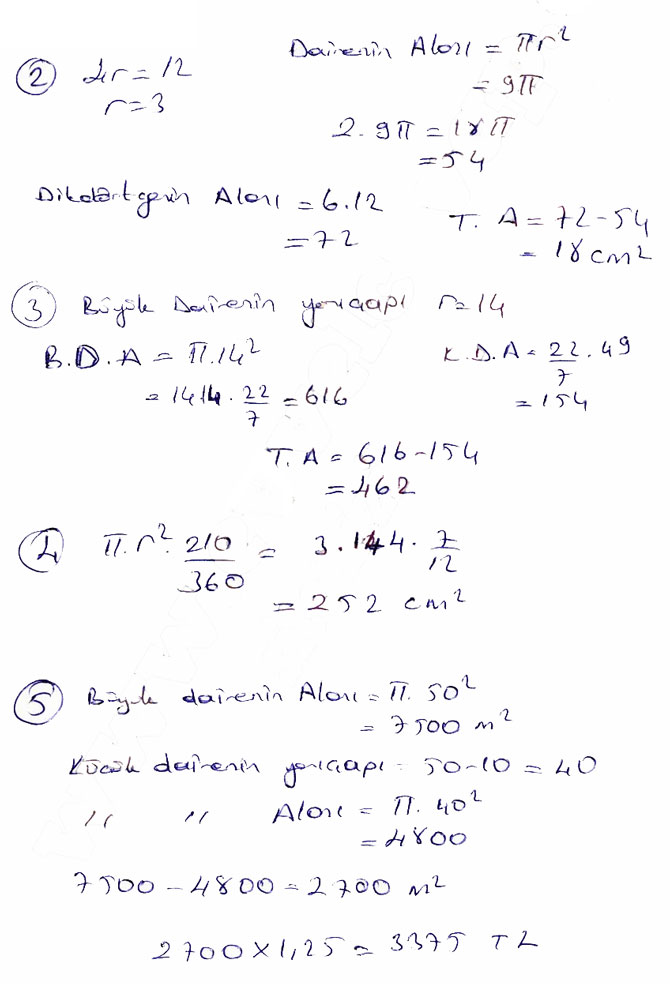 ② 4r = 12
r = 3
Dairenin Alanı = πr²
= 9π
2 . 9π = 18π
= 54
Dikdörtgenin Alanı = 6.12
= 72
T. A = 72 - 54
= 18 cm²
③ Büyük Dairenin yarıçapı r = 14
B.D.A = π.14²
= 14 14 . 22/7 = 616
K.D.A = 22/7 . 49
= 154
T. A = 616 - 154
= 462
④ π.r². 210/360 = 3.144. 7/12
= 252 cm²
⑤ Büyük dairenin Alanı = π. 50²
= 7500 m²
Küçük dairenin yarıçapı = 50-10 = 40
" " Alanı = π. 40²
= 4800
7500 - 4800 = 2700 m²
2700 x 1,25 = 3375 TL